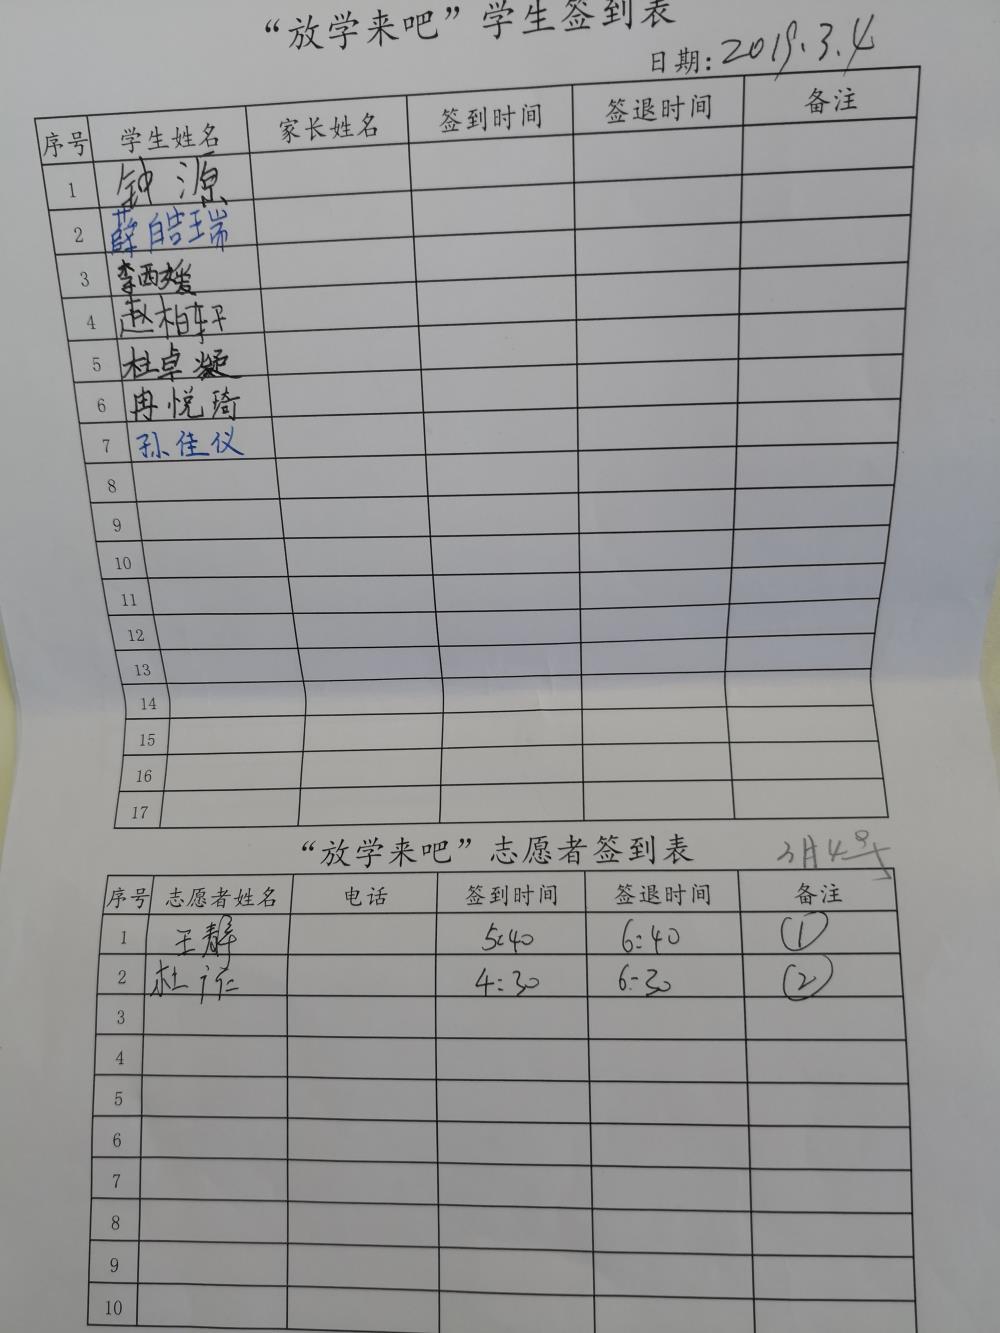 “放学来吧”学生签到表
日期:2019.3.4
序号 学生姓名 家长姓名 签到时间 签退时间 备注
1 钟源
2 薛皓瑞
3 李西媛
4 赵柏轩
5 杜卓凝
6 冉悦琦
7 孙佳仪
8
9
10
11
12
13
14
15
16
17
“放学来吧”志愿者签到表 3月4号
序号 志愿者姓名 电话 签到时间 签退时间 备注
1 王静 5:40 6:40 ①
2 杜 4:30 6:30 ②
3
4
5
6
7
8
9
10